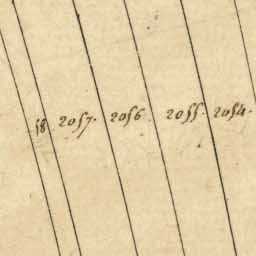 58 2057. 2056 2055. 2054.